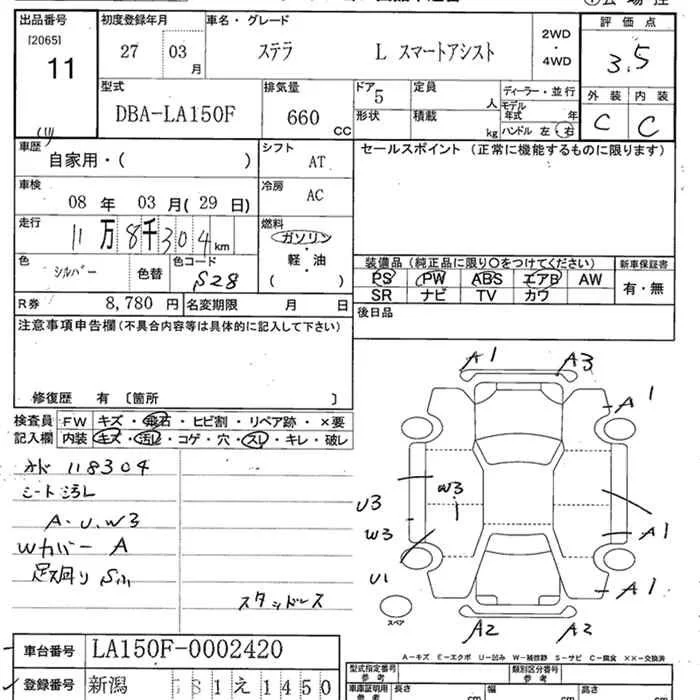 出品番号 初度登録年月 車名・グレード 評価点
[2065] 11 27 03 月 ステラ L スマートアシスト 2WD・4WD 3.5
型式 排気量 ドア 5 定員 人 ディーラー・並行 外装 内装
DBA-LA150F 660 CC 形状 積載 kg モデル年式 年 C C
ハンドル 左・右
車歴 自家用・( ) シフト AT セールスポイント(正常に機能するものに限ります)
車検 08 年 03 月(29 日) 冷房 AC
走行 11万8千304km 燃料 ガソリン・軽・油 ( )
色 シルバー 色替 色コード S28
装備品(純正品に限り○をつけてください) 新車保証書
PS PW ABS エアB AW 有・無
SR ナビ TV カワ
R券 8,780 円 名変期限 月 日 後日品
注意事項申告欄(不具合内容等は具体的に記入して下さい)
修復歴 有 〔箇所 〕
検査員 FW キズ・飛石・ヒビ割・リペア跡・×要
記入欄 内装 キズ・汚れ・コゲ・穴・スレ・キレ・破レ
118304
シート汚れ
A・U、W3
Wカバー A
足廻り
スタッドレス
A1 A3
A1
U3 W3 1
W3 A1
U1 A1
スペア
A2 A2
A-キズ E-エクボ U-凹み W-補修跡 S-サビ C-腐食 XX-交換済
車台番号 LA150F-0002420
登録番号 新潟 581 え 1450
型式指定番号 参考 類別区分番号 参考
車庫証明用 参考 長さ cm 幅 cm 高さ cm